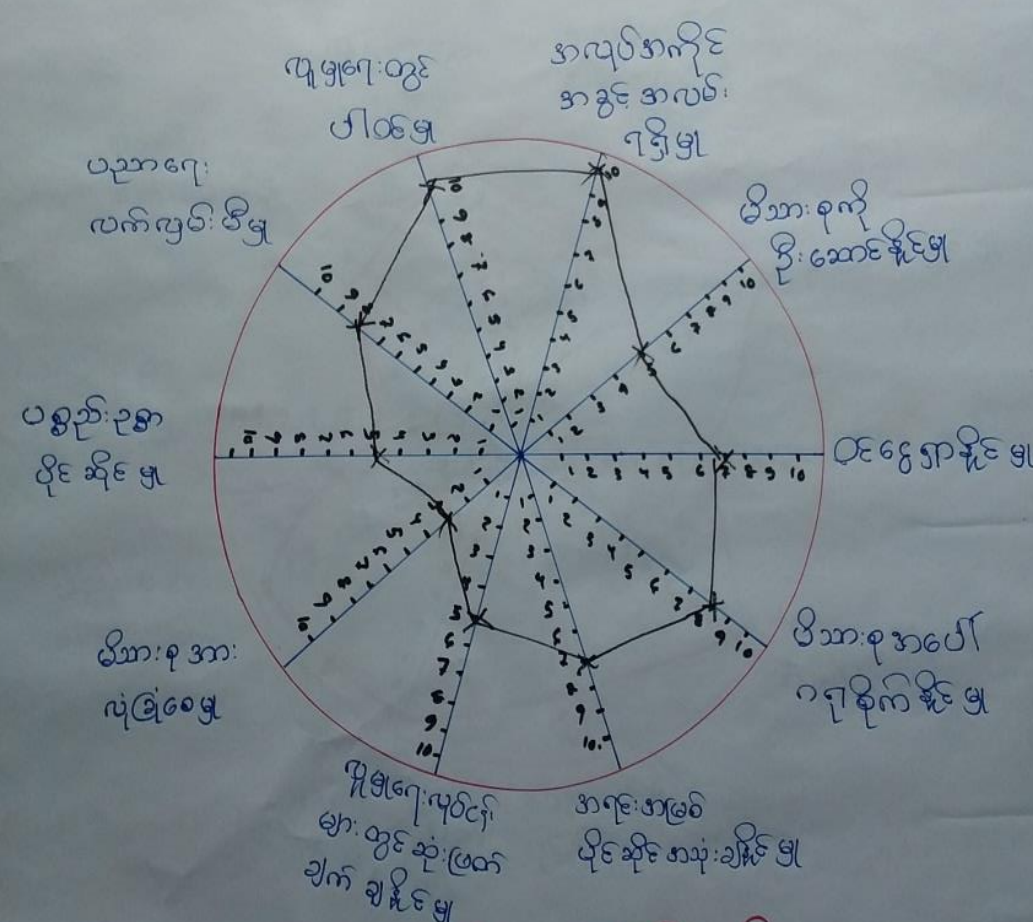 လူမှုရေးတွင်
ပါဝင်မှု
အလုပ်အကိုင်
အခွင့်အလမ်း
ရရှိမှု
မိသားစုကို
ဦးဆောင်နိုင်မှု
ဝင်ငွေရှာနိုင်မှု
မိသားစုအပေါ်
ဂရုစိုက်နိုင်မှု
အရင်းအမြစ်
ပိုင်ဆိုင်အသုံးချနိုင်မှု
လူမှုရေးလုပ်ငန်း
များတွင်ဆုံးဖြတ်
ချက်ချနိုင်မှု
မိသားစုအား
လုံခြုံစေမှု
ပစ္စည်းဥစ္စာ
ပိုင်ဆိုင်မှု
ပညာရေး
လက်လှမ်းမီမှု
1 2 3 4 5 6 7 8 9 10